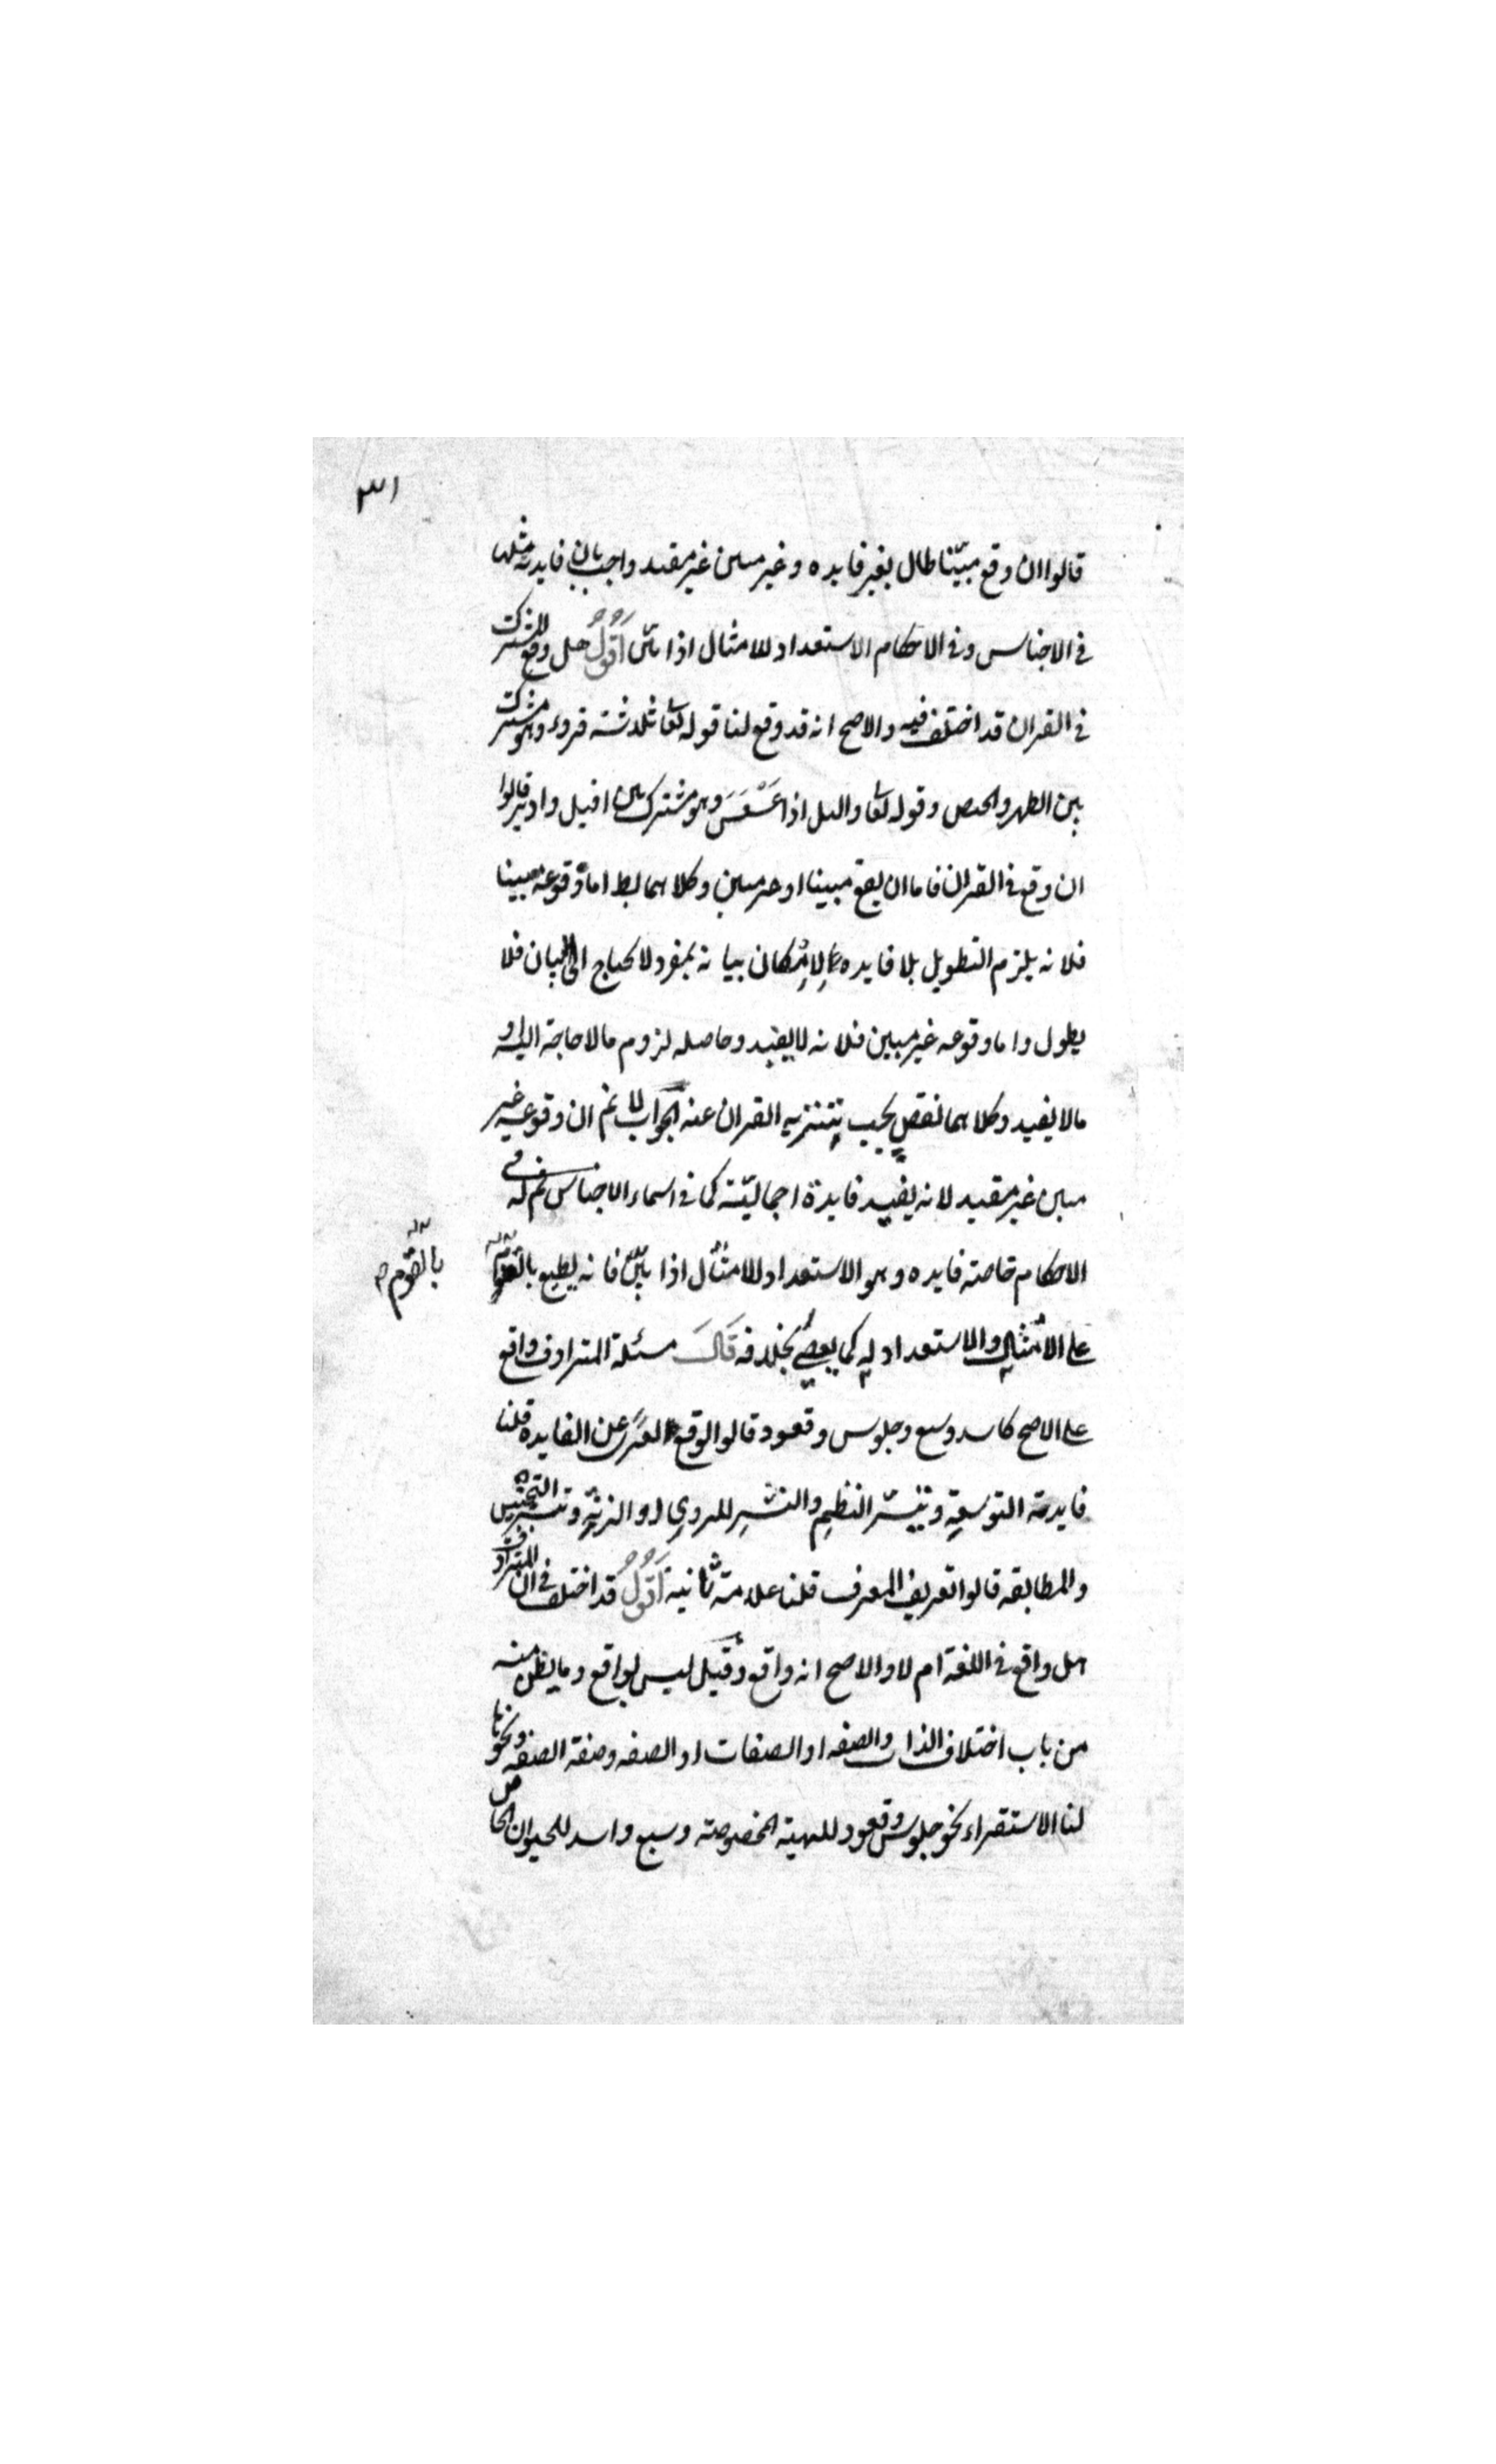 ٣١
قالوا ان وقع مبيّنا طال بغير فايده و غير مبين غير مفيد واجيب بان فايدته مثلها
في الاجناس وفي الاحكام الاستعداد للامتثال اذا بيّن أقول هل وقع المشترك
في القران قد اختلف فيه والاصح انه قد وقع لنا قوله تعا ثلثة قروء وهو مشترك
بين الطهر والحيض وقوله تعا والليل اذا عَسْعَسَ وهو مشترك بين اقبل وادبر قالوا
ان وقع في القران فاما ان يقع مبينا او غير مبين وكلاهما بط اما وقوعه مبينا
فلانه يلزم التطويل بلا فايده لامكان بيانه بمفرد لا يحتاج الى البيان فلا
يطول واما وقوعه غير مبين فلانه لا يفيد وحاصله لزوم مالا حاجة اليه او
مالا يفيد وكلاهما نقص يجب تنزيه القران عنه الجواب لا نم ان وقوعه غير
مبين غير مفيد لانه يفيد فايدة اجماليّة كما في اسماء الاجناس ثم له في
الاحكام خاصة فايده وهو الاستعداد للامتثال اذا بيّن فانه يطيع بالعزم
بالعزم صح
على الامتثال والاستعداد له كما يعصي بخلافه قال مسئلة المترادف واقع
على الاصح كاسد وسبع وجلوس وقعود قالوا لو وقع لعَرَى عن الفايده قلنا
فايدته التوسعة وتيسّر النظم والنثر للروي او الزنة وتيسير التجنيس
والمطابقه قالوا تعريف المعرف قلنا علامة ثانية أقول قد اختلف في ان المترادف
هل واقع في اللغة ام لا والاصح انه واقع وقيل ليس بواقع وما يظن منه
من باب اختلاف الذات والصفه او الصفات او الصفه وصفة الصفه ونحوها
لنا الاستقراء نحو جلوس وقعود للهيئة المخصوصة وسبع واسد للحيوان الخاص